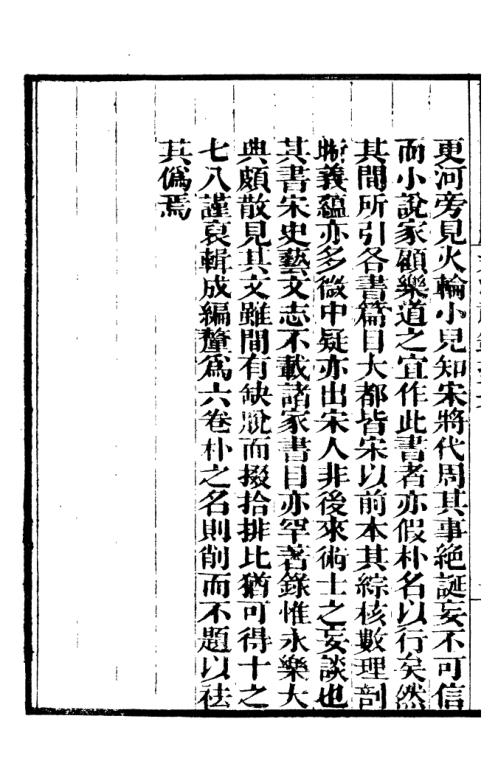 更河旁見火輪小兒知宋將代周其事絶誕妄不可信
而小說家顧樂道之宜作此書者亦假朴名以行矣然
其間所引各書篇目大都皆宋以前本其綜核數理剖
晰義蘊亦多微中疑亦出宋人非後來術士之妄談也
其書宋史藝文志不載諸家書目亦罕著錄惟永樂大
典頗散見其文雖間有缺脫而掇拾排比猶可得十之
七八謹裒輯成編釐爲六卷朴之名則削而不題以祛
其僞焉